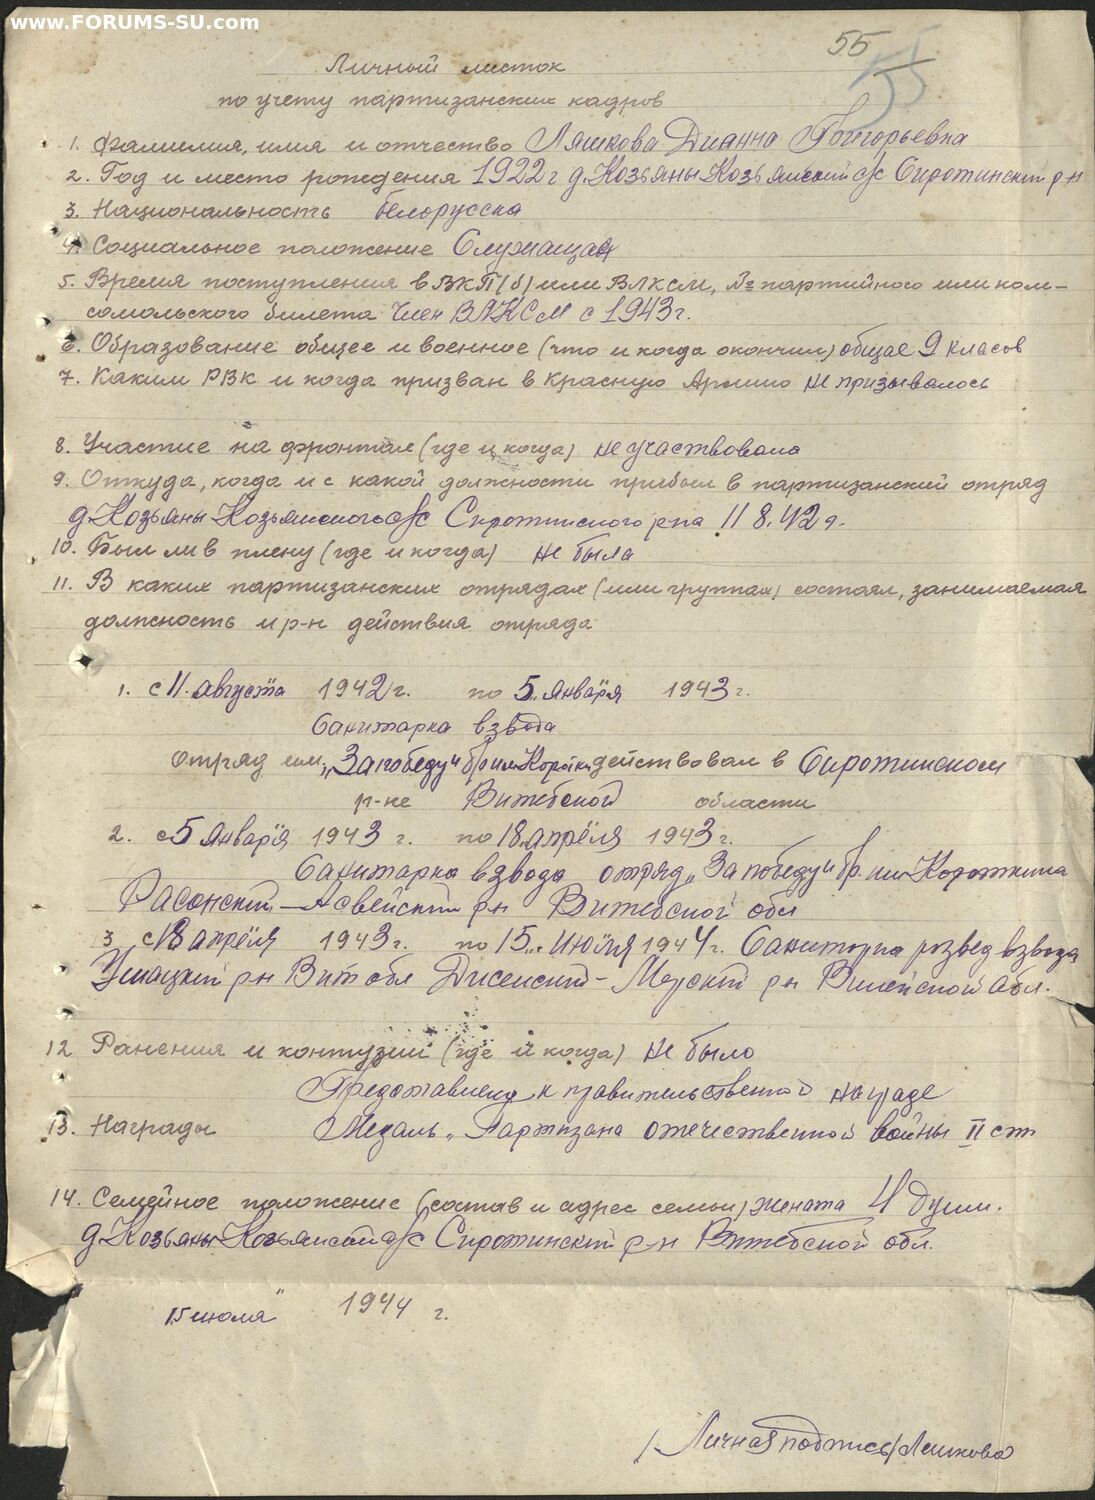 www.FORUMS-SU.com
55
55
Личный листок
по учету партизанских кадров
1. Фамилия, имя и отчество Ляшкова Дианна Григорьевна
2. Год и место рождения 1922 г д. Козьяны Козьянский с/с Сиротинский р-н
3. Национальность белорусска
4. Социальное положение Служащая
5. Время поступления в ВКП(б) или ВЛКСМ, № партийного или ком-
сомольского билета Член ВЛКСМ с 1943 г.
6. Образование общее и военное (что и когда окончил) общае 9 класов
7. Каким РВК и когда призван в Красную Армию не призывалось
8. Участие на фронтах (где и когда) не участвовала
9. Откуда, когда и с какой должности прибыл в партизанский отряд
д. Козьяны Козьянского с/с Сиротинского р-на 11 8. 42 г.
10. Был ли в плену (где и когда) не была
11. В каких партизанских отрядах (или группах) состоял, занимаемая
должность и р-н действия отряда
1. с 11. августа 1942 г. по 5. января 1943 г.
Санитарка взвода
Отряд им. "За победу" бр им Коротк. действовал в Сиротинском
р-не Витебской области
2. с 5 января 1943 г. по 18 апреля 1943 г.
Санитарка взвода отряд "За победу" бр. им Короткина
Расонский - Асвейский р-н Витебской обл
3 с 18 апреля 1943 г. по 15.. июля 1944 г. Санитарка розвед взвода
Ушацкий р-н Вит обл Дисенский - Мерский р-н Вилейской обл.
12 Ранения и контузии (где и когда) не было
Предоставлена к правительственной награде
13. Награды Медаль "Партизана отечественной войны II ст
14. Семейное положение (состав и адрес семьи) жената 4 души.
д. Козьяны Козьянский с/с Сиротинский р-н Витебской обл.
15 июля" 1944 г.
/Личная подпись/ Ляшкова